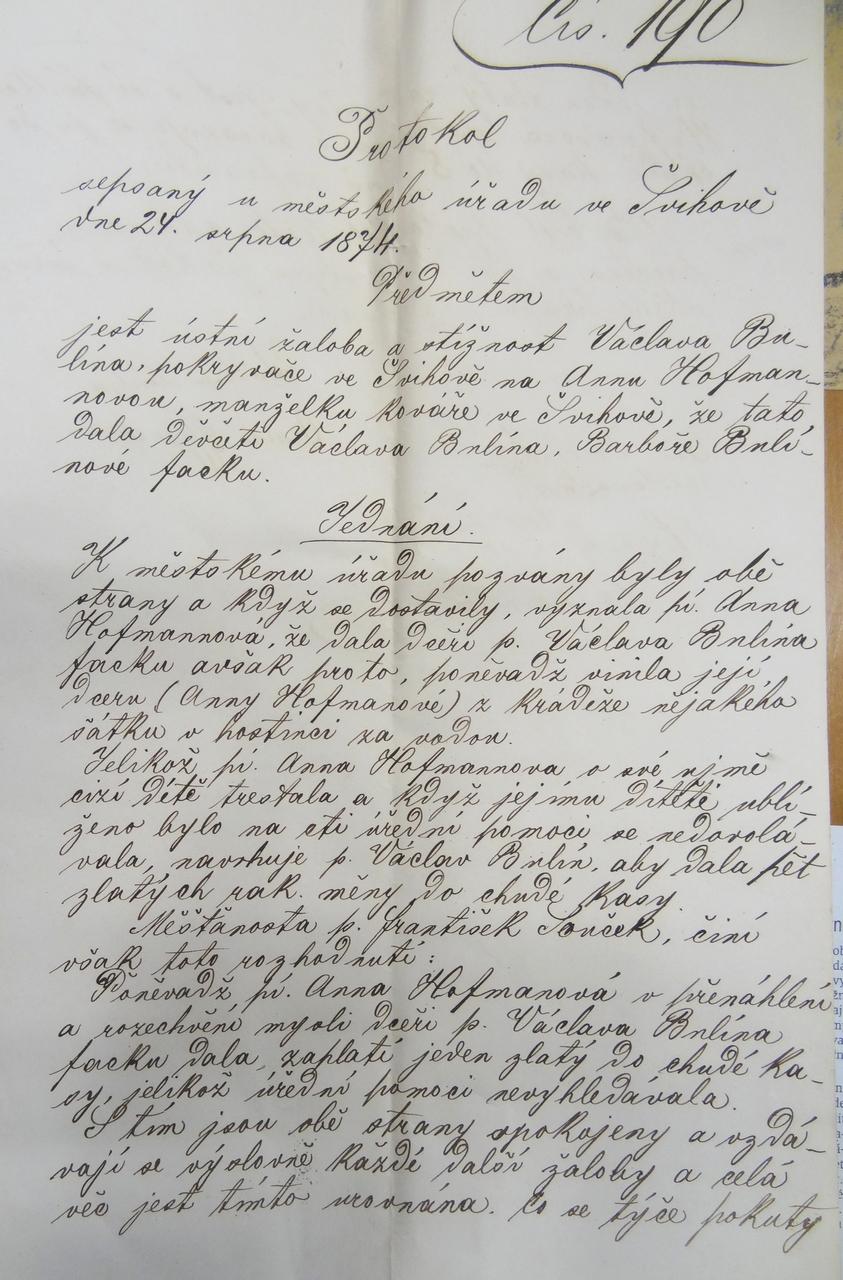 Čís. 190
Protokol
sepsaný u městského úřadu ve Švihově
dne 24. srpna 1874.
Předmětem
jest ústní žaloba a stížnost Václava Bu-
lína, pokryvače ve Švihově na Annu Hofman-
novou, manželku kováře ve Švihově, že tato
dala děvčeti Václava Bulína, Barboře Bulí-
nové facku.
Jednání.
K městskému úřadu pozvány byly obě
strany a když se dostavily, vyznala pí. Anna
Hofmannová, že dala dceři p. Václava Bulína
facku avšak proto, poněvadž vinila její
dceru (Anny Hofmanové) z krádeže nějakého
šátku v hostinci za vodou.
Jelikož pí. Anna Hofmannova o své ujmě
cizí dítě trestala a když jejímu dítěti ublí-
ženo bylo na cti úřední pomoci se nedovolá-
vala, navrhuje p. Václav Bulín, aby dala pět
zlatých rak. měny do chudé kasy.
Měšťanosta p. František Souček, činí
však toto rozhodnutí:
Poněvadž pí. Anna Hofmanová v přenáhlení
a rozechvění mysli dceři p. Václava Bulína
facku dala, zaplatí jeden zlatý do chudé ka-
sy, jelikož úřední pomoci nevyhledávala.
S tím jsou obě strany spokojeny a vzdá-
vají se výslovně každé další žaloby a celá
věc jest tímto urovnána. Co se týče pokuty